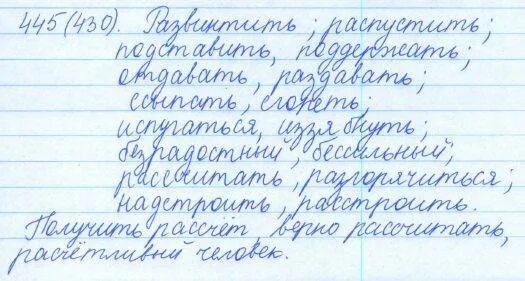 445(430). Развинтить; распустить;
подставить, поддержать;
отдавать, раздавать;
ссыпать, сгореть;
испугаться, иззябнуть;
безрадостный, бессильный,
рассчитать, разгорячиться;
надстроить, расстроить.
Получить рассчёт, верно рассчитать,
расчётливый человек.